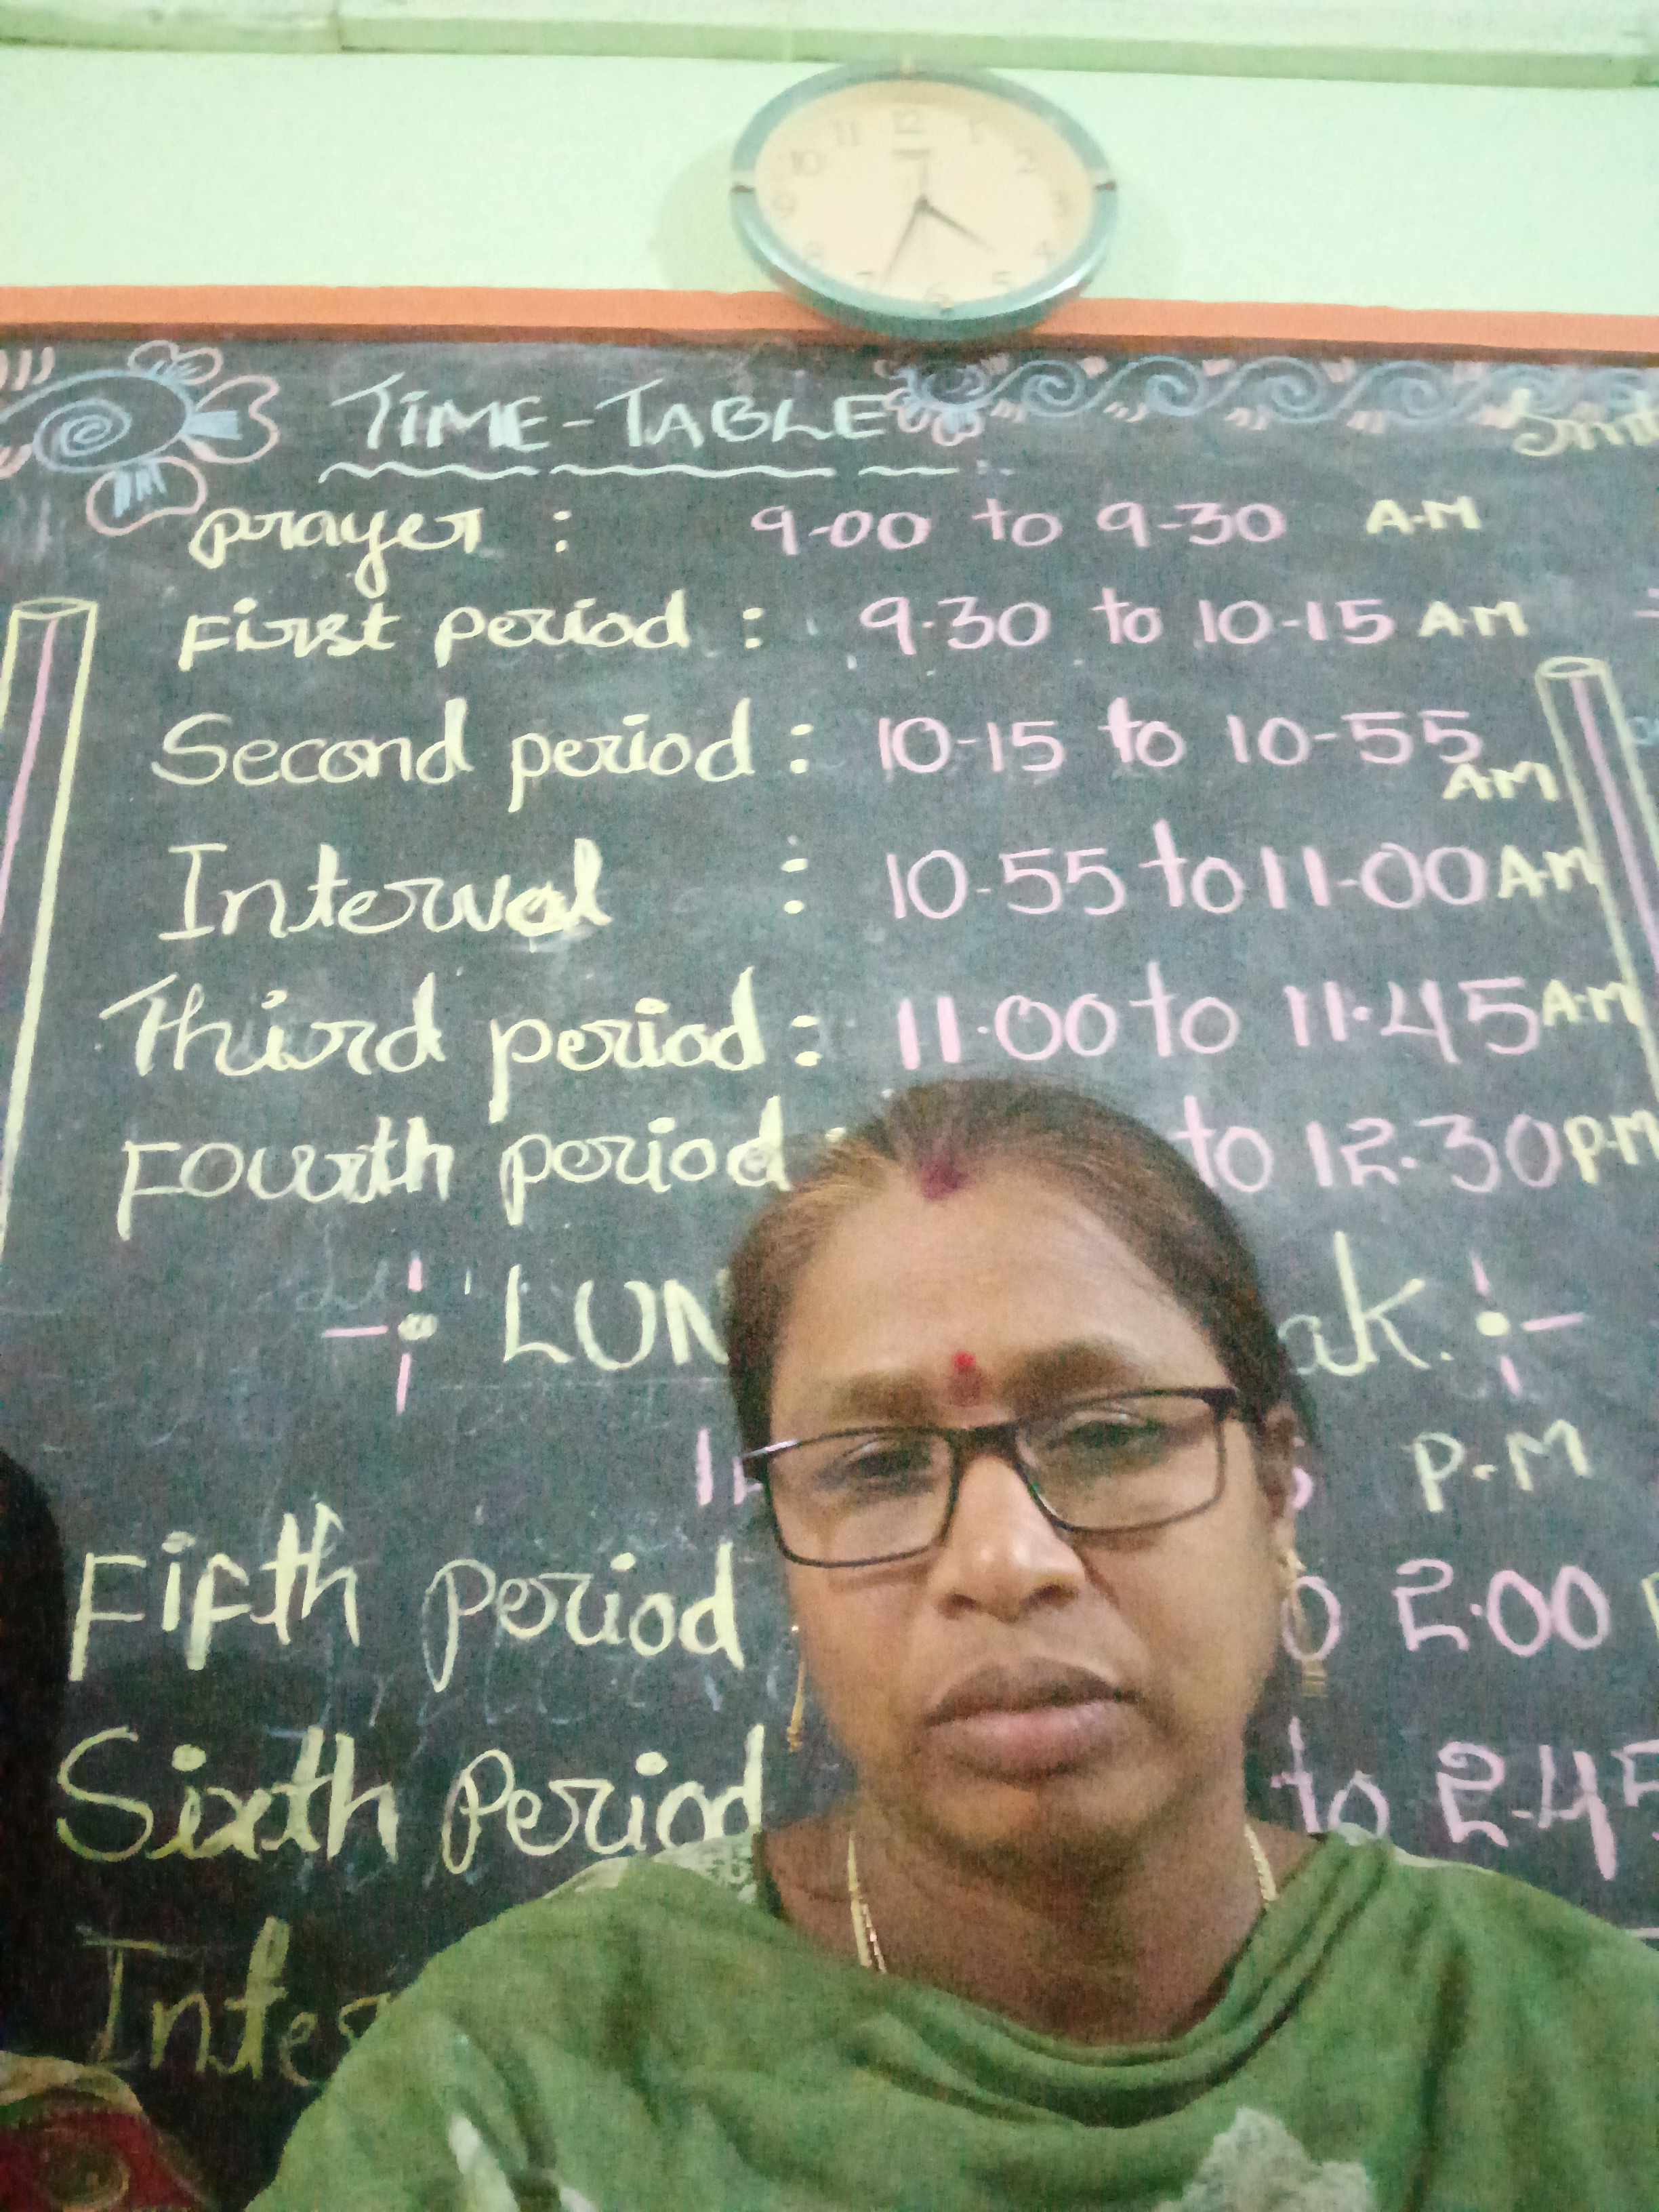 12
1
2
3
4
5
6
7
8
9
10
11
TIME-TABLE
prayer : 9-00 to 9-30 A-M
First period : 9.30 to 10-15 A.M
Second period : 10-15 to 10-55 AM
Interval : 10-55 to 11-00 A-M
Third period : 11.00 to 11.45 A.M
Fourth period : to 12.30 P.M
P.M
Fifth period 2.00
Sixth Period to 2-45